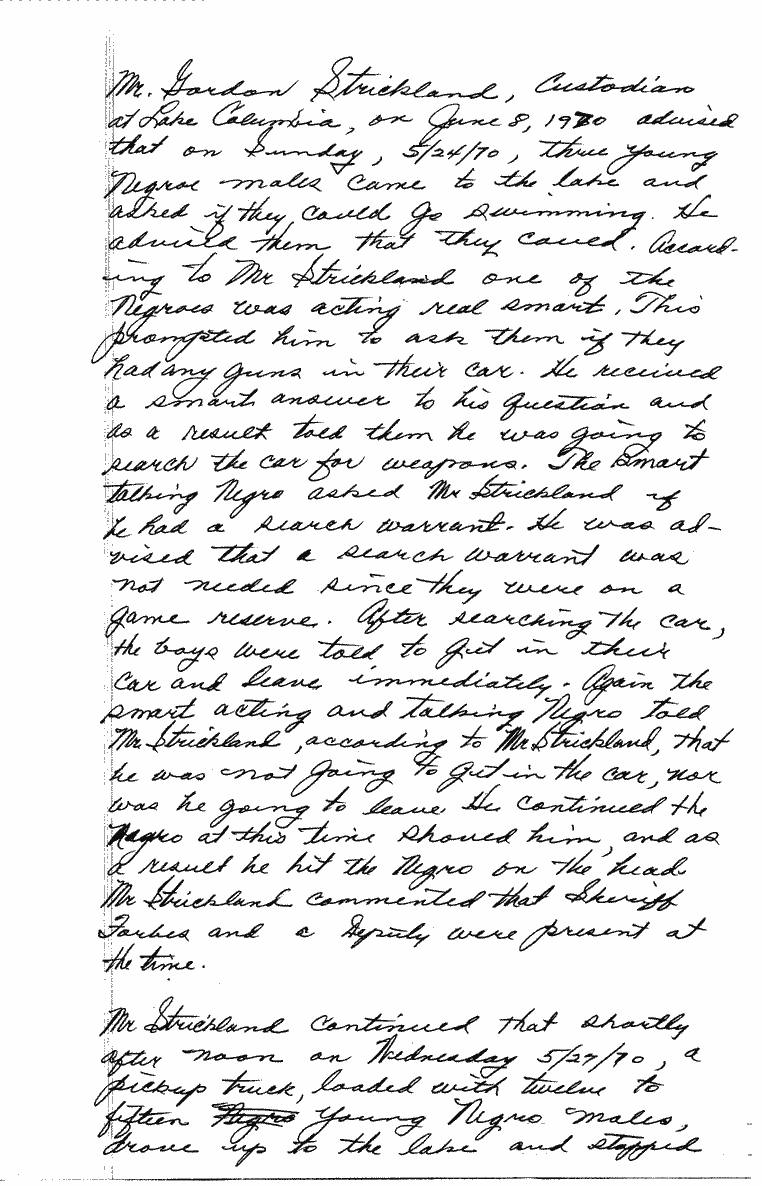 Mr. Gordon Strickland, Custodian
at Lake Columbia, on June 8, 1970 advised
that on Sunday, 5/24/70, three young
Negroe males came to the lake and
asked if they could go swimming. He
advised them that they could. Accord-
ing to Mr Strickland one of the
Negroes was acting real smart. This
prompted him to ask them if they
had any guns in their car. He received
a smart answer to his question and
as a result told them he was going to
search the car for weapons. The smart
talking Negro asked Mr Strickland if
he had a search warrant. He was ad-
vised that a search warrant was
not needed since they were on a
game reserve. After searching the car,
the boys were told to get in their
car and leave immediately. Again the
smart acting and talking Negro told
Mr. Strickland, according to Mr Strickland, that
he was not going to get in the car, nor
was he going to leave. He continued the
Negro at this time shoved him, and as
a result he hit the Negro on the head.
Mr Strickland commented that Sheriff
Forbes and a Deputy were present at
the time.
Mr Strickland continued that shortly
after noon on Wednesday 5/27/70, a
pickup truck, loaded with twelve to
fifteen Negro young Negro males,
drove up to the lake and stopped